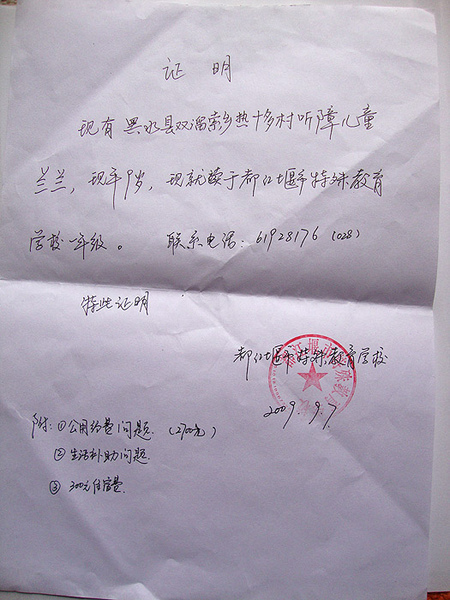 证明
现有黑水县双溜索乡热十多村听障儿童
兰兰，现年9岁，现就读于都江堰市特殊教育
学校一年级。 联系电话：61928176（028）
特此证明
都江堰市特殊教育学校
2009.9.7
附：①公用经费问题.（2700元）
②生活补助问题
③300元住宿费.